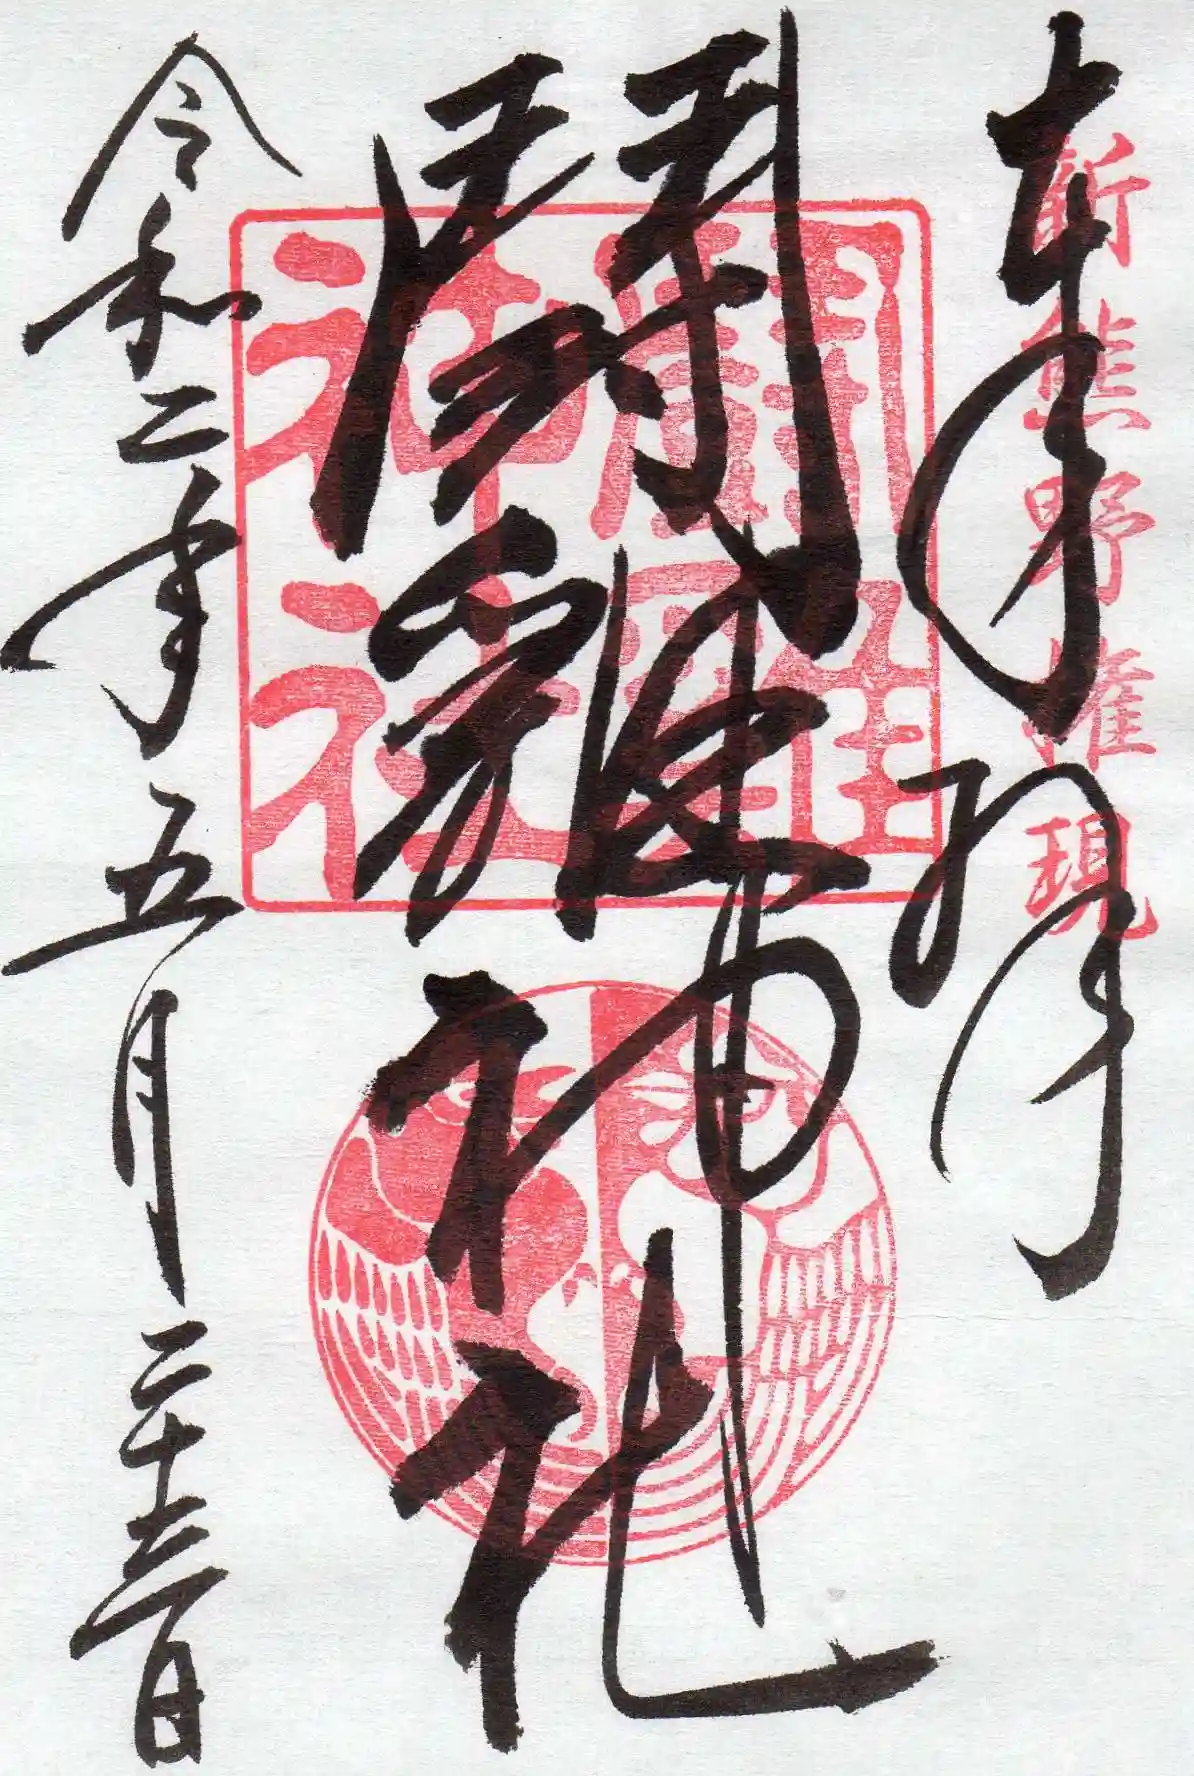 奉拝
新熊野権現
鬪雞神社
鬪雞
神社
令和二年五月二十三日